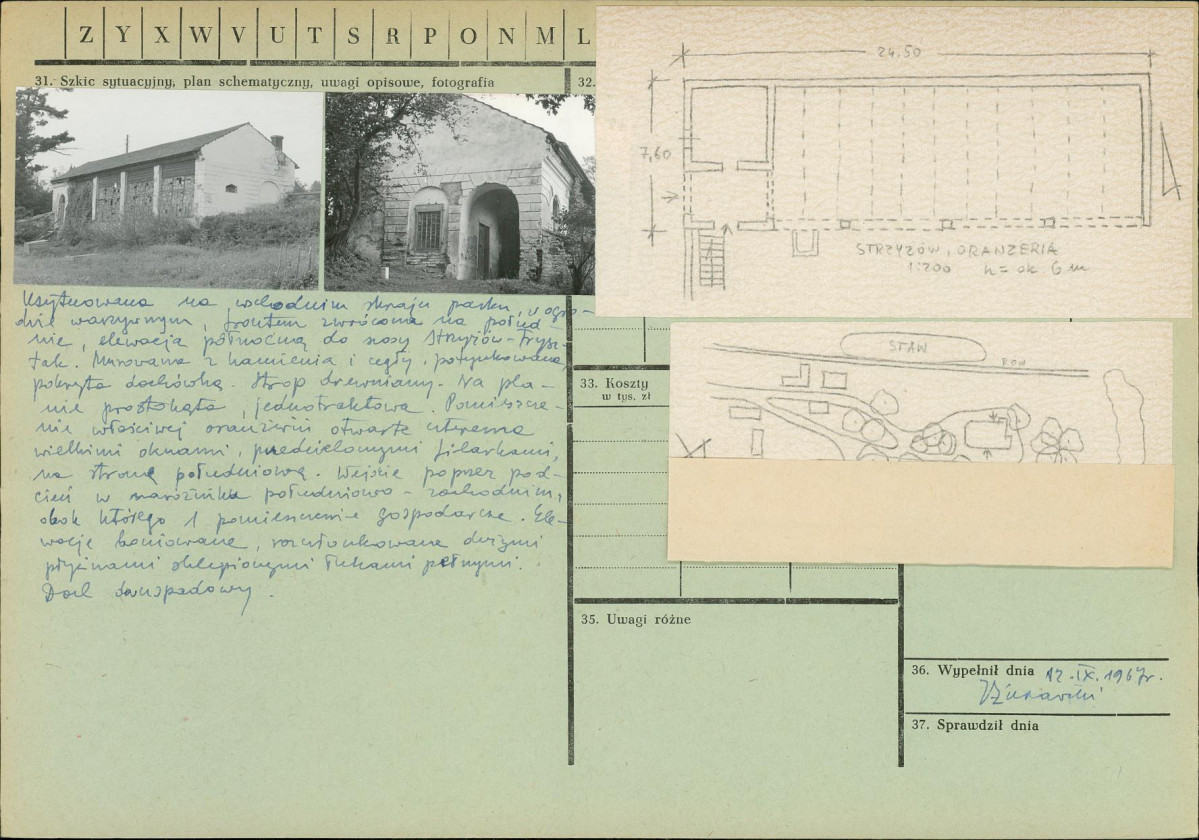 Z Y X W V U T S R P O N M L
31. Szkic sytuacyjny, plan schematyczny, uwagi opisowe, fotografia
32.
24,50
7,60
STRZYŻÓW, ORANŻERIA
1:200 h = ok 6 m
Usytuowana na wschodnim skraju parku, w ogro-
dzie warzywnym, frontem zwrócona na połud-
nie, elewacją północną do szosy Strzyżów-Frysz-
tak. Murowana z kamienia i cegły, potynkowana,
pokryta dachówką. Strop drewniany. Na pla-
nie prostokąta, jednotraktowa. Pomieszcze-
nie właściwej oranżerii otwarte czterema
wielkimi oknami, przedzielonymi filarkami,
na stronę południową. Wejście poprzez pod-
cień w narożniku południowo-zachodnim,
obok którego 1 pomieszczenie gospodarcze. Ele-
wacje boniowane, rozczłonkowane dużymi
płycinami sklepionymi łukami pełnymi.
Dach dwuspadowy.
STAW
RÓW
33. Koszty
w tys. zł
35. Uwagi różne
36. Wypełnił dnia 12.IX.1967r.
37. Sprawdził dnia